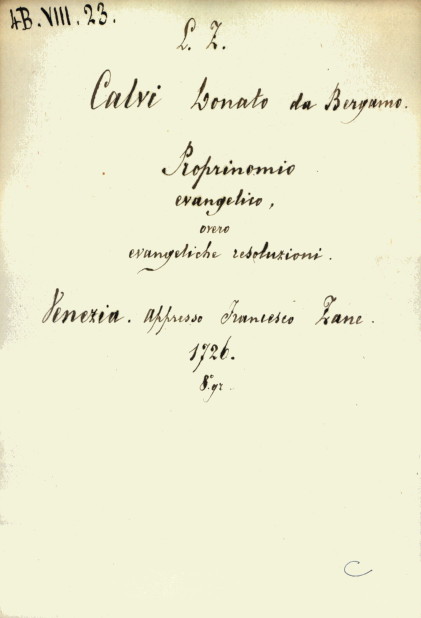 4B.VIII.23.
L. Z.
Calvi Donato da Bergamo.
Proprinomio
evangelico,
overo
evangeliche resoluzioni.
Venezia. appresso Francesco Zane.
1726.
8° gr.
C